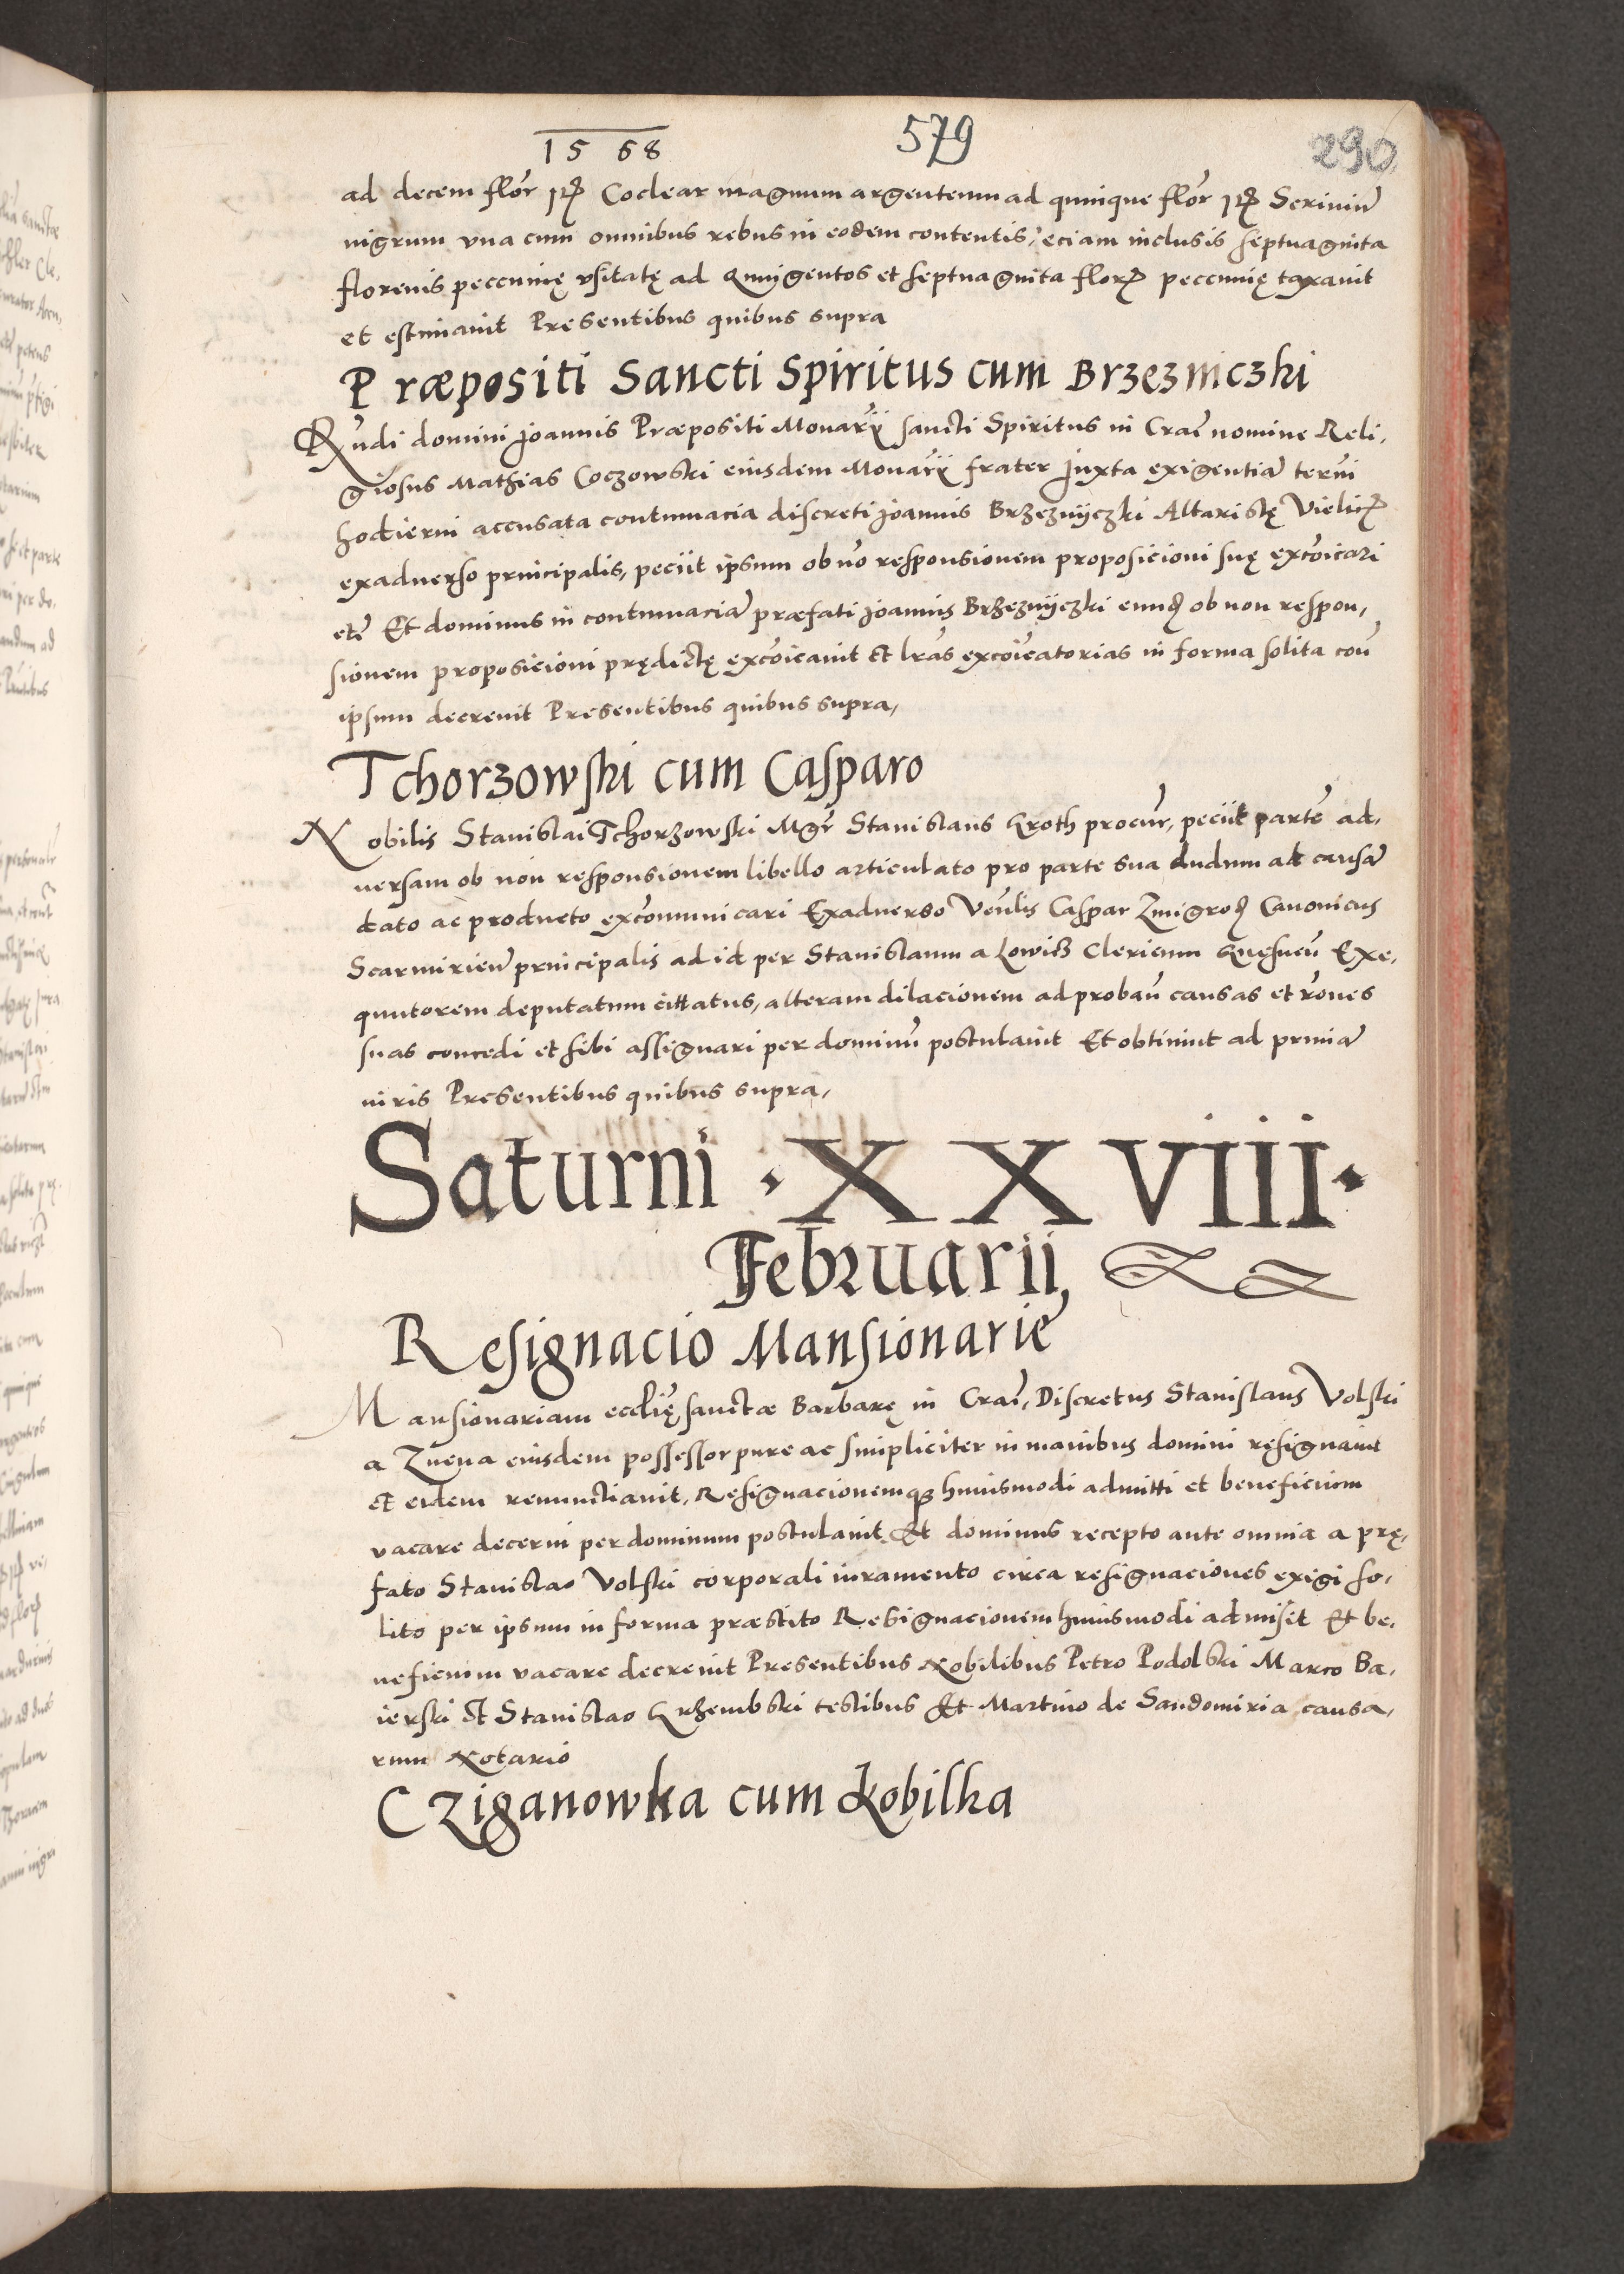 1568
579
290
ad decem flor̄ Coclear magnum argenteum ad quinque flor̄ Scriniū
nigrum vna cum omnibus rebus in eodem contentis, eciam inclusis septuaginta
florenis peccunię vsitatę ad Quingentos et septuaginta flor̄ peccunię taxauit
et estimauit Presentibus quibus supra
Præpositi Sancti Spiritus cum Brzezniczki
Rn̄di domini Joannis Præpositi Monar̄ij sancti Spiritus in Crac̄ nomine Reli,
giosus Mathias Coczowski eiusdem Monar̄ij frater Juxta exigentiā terᵐi
hodierni accusata contumacia discreti Joannis Brzeznijczki Altaristę Vielicz̄
exaduerso principalis, peciit ipsum ob nō responsionem proposicioni suę excōicari
etc̄ Et dominus in contumaciā præfati Joannis Brzeznijczki eund̄ ob non respon,
sionem proposicioni prędictę excōicauit et lr̄as excōicatorias in forma solita con̄
ipsum decreuit Presentibus quibus supra,
Tchorzowski cum Casparo
Nobilis Stanislai Tchorzowski Mgr̄ Stanislaus Kroth procur̄, peciit partē ad,
uersam ob non responsionem libello articulato pro parte sua dudum ad causā
dato ac producto excōmunicari Exaduerso Ven̄lis Caspar Zmigrod̄ Canonicus
Scarmirien̄ principalis ad id per Stanislaum a Lowicz Clericum Gnesnen̄ Exe,
quutorem deputatum cittatus, alteram dilacionem ad proban̄ causas et rōnes
suas concedi et sibi assignari per dominū postulauit Et obtinuit ad primā
iuris Presentibus quibus supra,
Saturni · XXVIII ·
Februarii,
Resignacio Mansionarie
Mansionariam ecclię̄ sanctæ Barbarę in Crac̄, Discretus Stanislaus Volski
a Znena eiusdem possessor pure ac simpliciter in manibus domini resignauit
et eidem renunctiauit, Resignacionemque huiusmodi admitti et beneficium
vacare decerni per dominum postulauit Et dominus recepto ante omnia a prę,
fato Stanislao Volski corporali iuramento circa resignaciones exigi so,
lito per ipsum in forma præstito Resignacionem huiusmodi admisit Et be,
neficium vacare decreuit Presentibus Nobilibus Petro Podolski Marco Ba,
ierski et Stanislao Krzembski testibus Et Martino de Sandomiria causa,
rum Notario
Cziganowka cum Kobilka